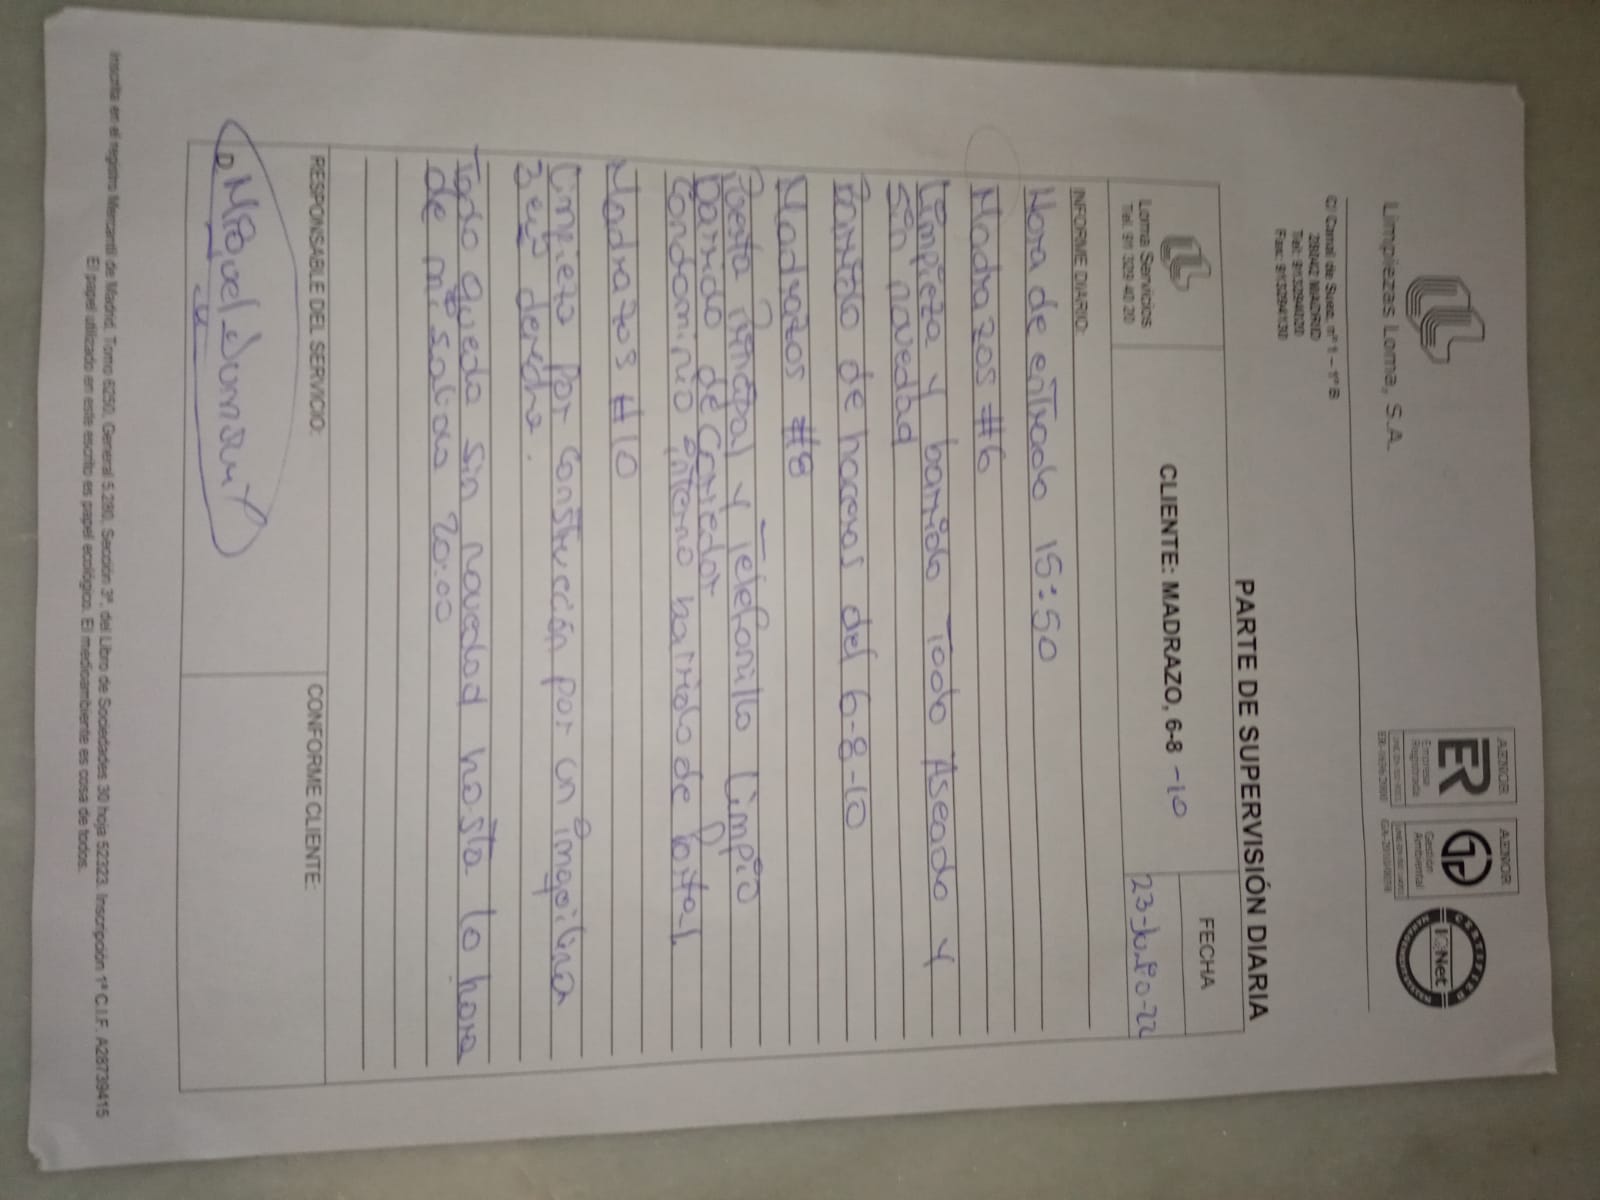 Limpiezas Loma, S.A.
C/ Canal de Suez, nº 1 - 1º B
28042 MADRID
Tel: 913294020
Fax: 913294130
AENOR
ER
Empresa
Registrada
AENOR
Gestión
Ambiental
CERTIFIED
IQNet
PARTE DE SUPERVISIÓN DIARIA
Loma Servicios
Tel. 91 329 40 20
CLIENTE: MADRAZO, 6-8 -10
FECHA
23-Junio-22
INFORME DIARIO:
Hora de entrada 15:50
Madrazos #6
Limpieza y barrido Todo Aseado y
Sin novedad
barrido de haceras del 6-8-10
Madrazos #8
Puerta principal y Telefonillo Limpio
barrido de Corredor
condominio interno barrido de Portal.
Madrazos #10
Limpieto por construcción por un inquilino
derecha.
Todo queda sin novedad hasta la hora
de mi salida 20:00
RESPONSABLE DEL SERVICIO:
CONFORME CLIENTE:
D. Miguel
Inscrita en el registro Mercantil de Madrid, Tomo 6250, General 5.280, Sección 3ª, del Libro de Sociedades 30 hoja 52323. Inscripción 1ª C.I.F. A28739415
El papel utilizado en este escrito es papel ecológico. El medioambiente es cosa de todos.